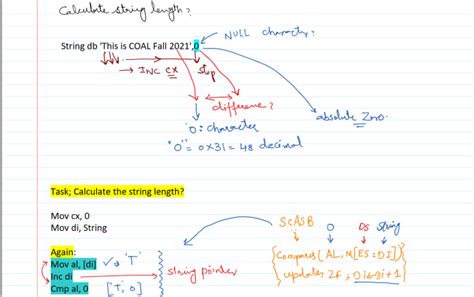 Calculate string length?
NULL character?
String db 'This is COAL Fall 2021',0
→ INC cx
stop
difference?
absolute Zero.
'0: character
"0" = 0x31 = 48 decimal
Task; Calculate the string length?
Mov cx, 0
Mov di, String
SCASB 0 DS string
Again:
Mov al, [di] → 'T'
Compares(AL, M[ES:DI])
Inc di
string pointer
updates ZF, DI=DI+1
Cmp al, 0
['T', 0]